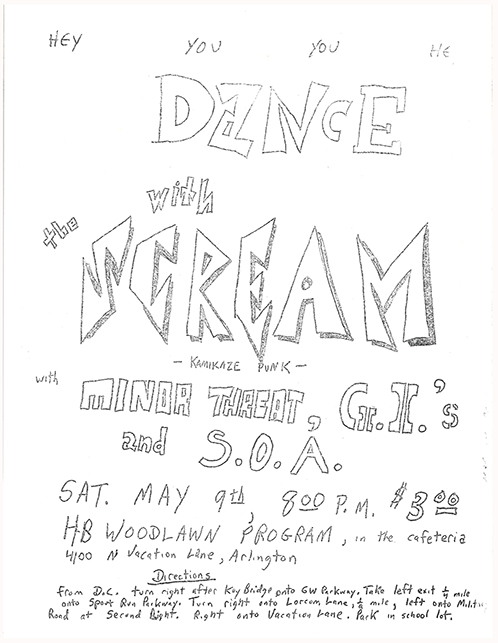 HEY YOU YOU HE
DANCE
with
the
SCREAM
- KAMIKAZE PUNK -
with MINOR THREAT, G.I.'s
and S.O.A.
SAT. MAY 9th, 8:00 P.M. $3.00
HB WOODLAWN PROGRAM, in the cafeteria
4100 N Vacation Lane, Arlington
Directions
From D.C. turn right after Key Bridge onto GW Parkway. Take left exit ¼ mile
onto Spout Run Parkway. Turn right onto Lorcom Lane, ½ mile, left onto Milit
Road at Second Right. Right onto Vacation Lane. Park in school lot.